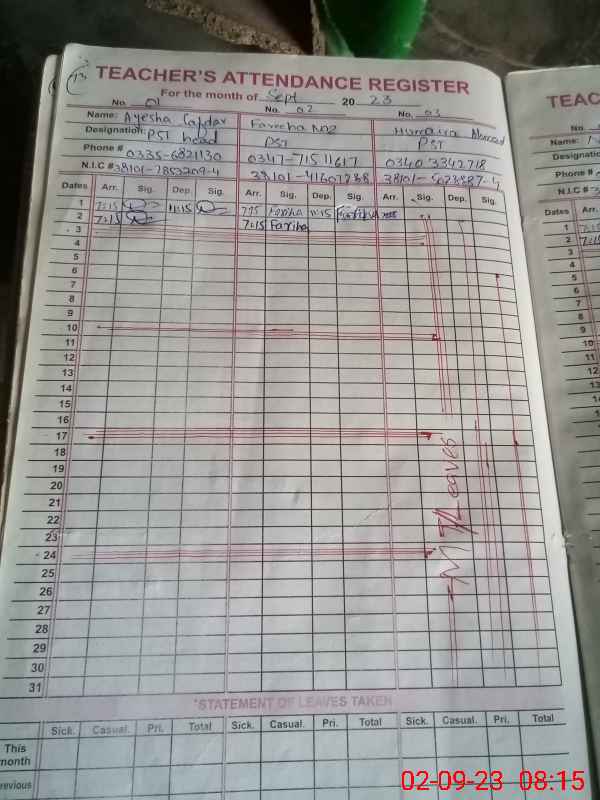 13
TEACHER'S ATTENDANCE REGISTER
For the month of Sept 2023
No. 01 No. 02 No. 03
Name: Ayesha Humaira Ahmad
Designation: PST head PST PST
Phone # 0335-6821130 0347-71511617 0340 3342718
N.I.C #
Dates Arr. Sig. Dep. Sig. Arr. Sig. Dep. Sig. Arr. Sig. Dep. Sig.
1 7:15 11:15 Fariha 11:15 Fariha
2 7:15 7:15 Fariha
3
4
5
6
7
8
9
10
11
12
13
14
15
16
17
18
19
20
21
22
23
24
25
26
27
28
29
30
31
M T/Leaves
STATEMENT OF LEAVES TAKEN
Sick. Casual. Pri. Total Sick. Casual. Pri. Total Sick. Casual. Pri. Total
This month
revious
TEAC
No.
Name:
Designatio
Phone #
N.I.C #
Dates Arr.
1 7:15
2 7:15
3
4
5
6
7
8
9
10
11
12
13
14
02-09-23 08:15